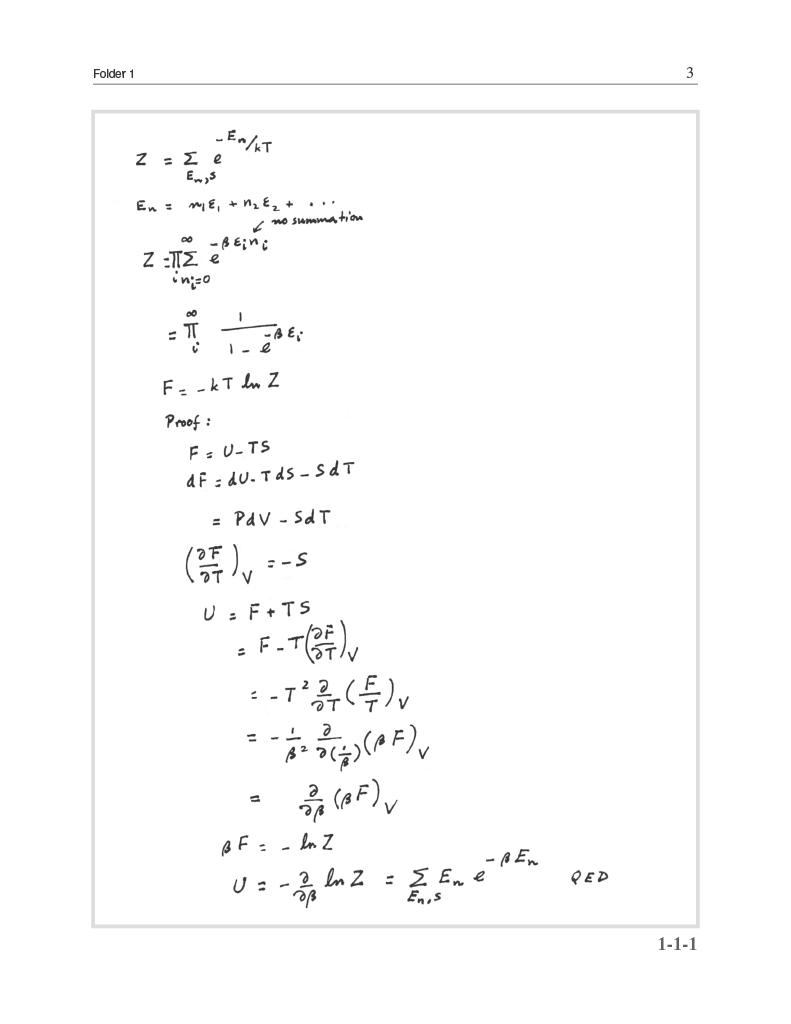 Folder 1 3
Z = Σ_{E_n,S} e^{-E_n/kT}
E_n = n_1 ε_1 + n_2 ε_2 + ...
no summation
Z = Π_i^∞ Σ_{n_i=0} e^{-β ε_i n_i}
= Π_i^∞ 1/(1 - e^{-β ε_i})
F = - kT ln Z
Proof:
F = U - TS
dF = dU - TdS - SdT
= PdV - SdT
(∂F/∂T)_V = - S
U = F + TS
= F - T(∂F/∂T)_V
= - T^2 ∂/∂T (F/T)_V
= - 1/β^2 ∂/∂(1/β) (βF)_V
= ∂/∂β (βF)_V
βF = - ln Z
U = - ∂/∂β ln Z = Σ_{E_n,S} E_n e^{-βE_n} QED
1-1-1